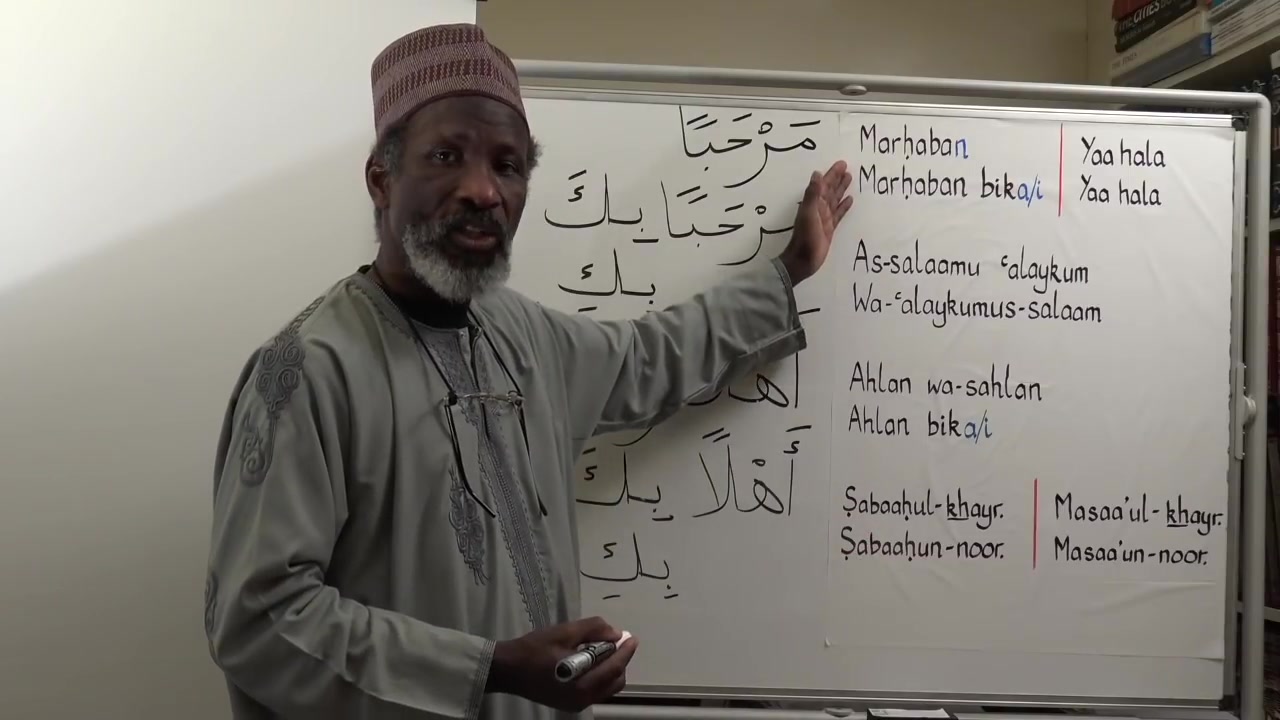 مَرْحَبًا
مَرْحَبًا بِكَ
بِكِ
أَهْلًا بِكَ
بِكِ
Marḥaban
Marḥaban bika/i
Yaa hala
Yaa hala
As-salaamu ʿalaykum
Wa-ʿalaykumus-salaam
Ahlan wa-sahlan
Ahlan bika/i
Ṣabaaḥul-khayr.
Ṣabaaḥun-noor.
Masaa'ul-khayr.
Masaa'un-noor.
THE CITIES